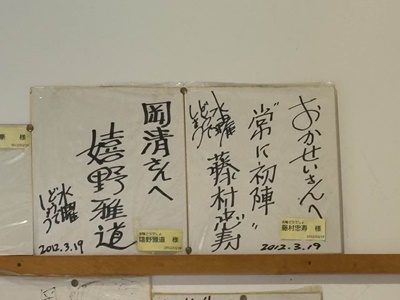 おかせいさんへ
"常に初陣"
藤村忠寿
水曜
どうでしょう
2012.3.19
藤村忠寿 様
岡清さんへ
嬉野雅道
水曜
どうでしょう
2012.3.19
嬉野雅道 様
様